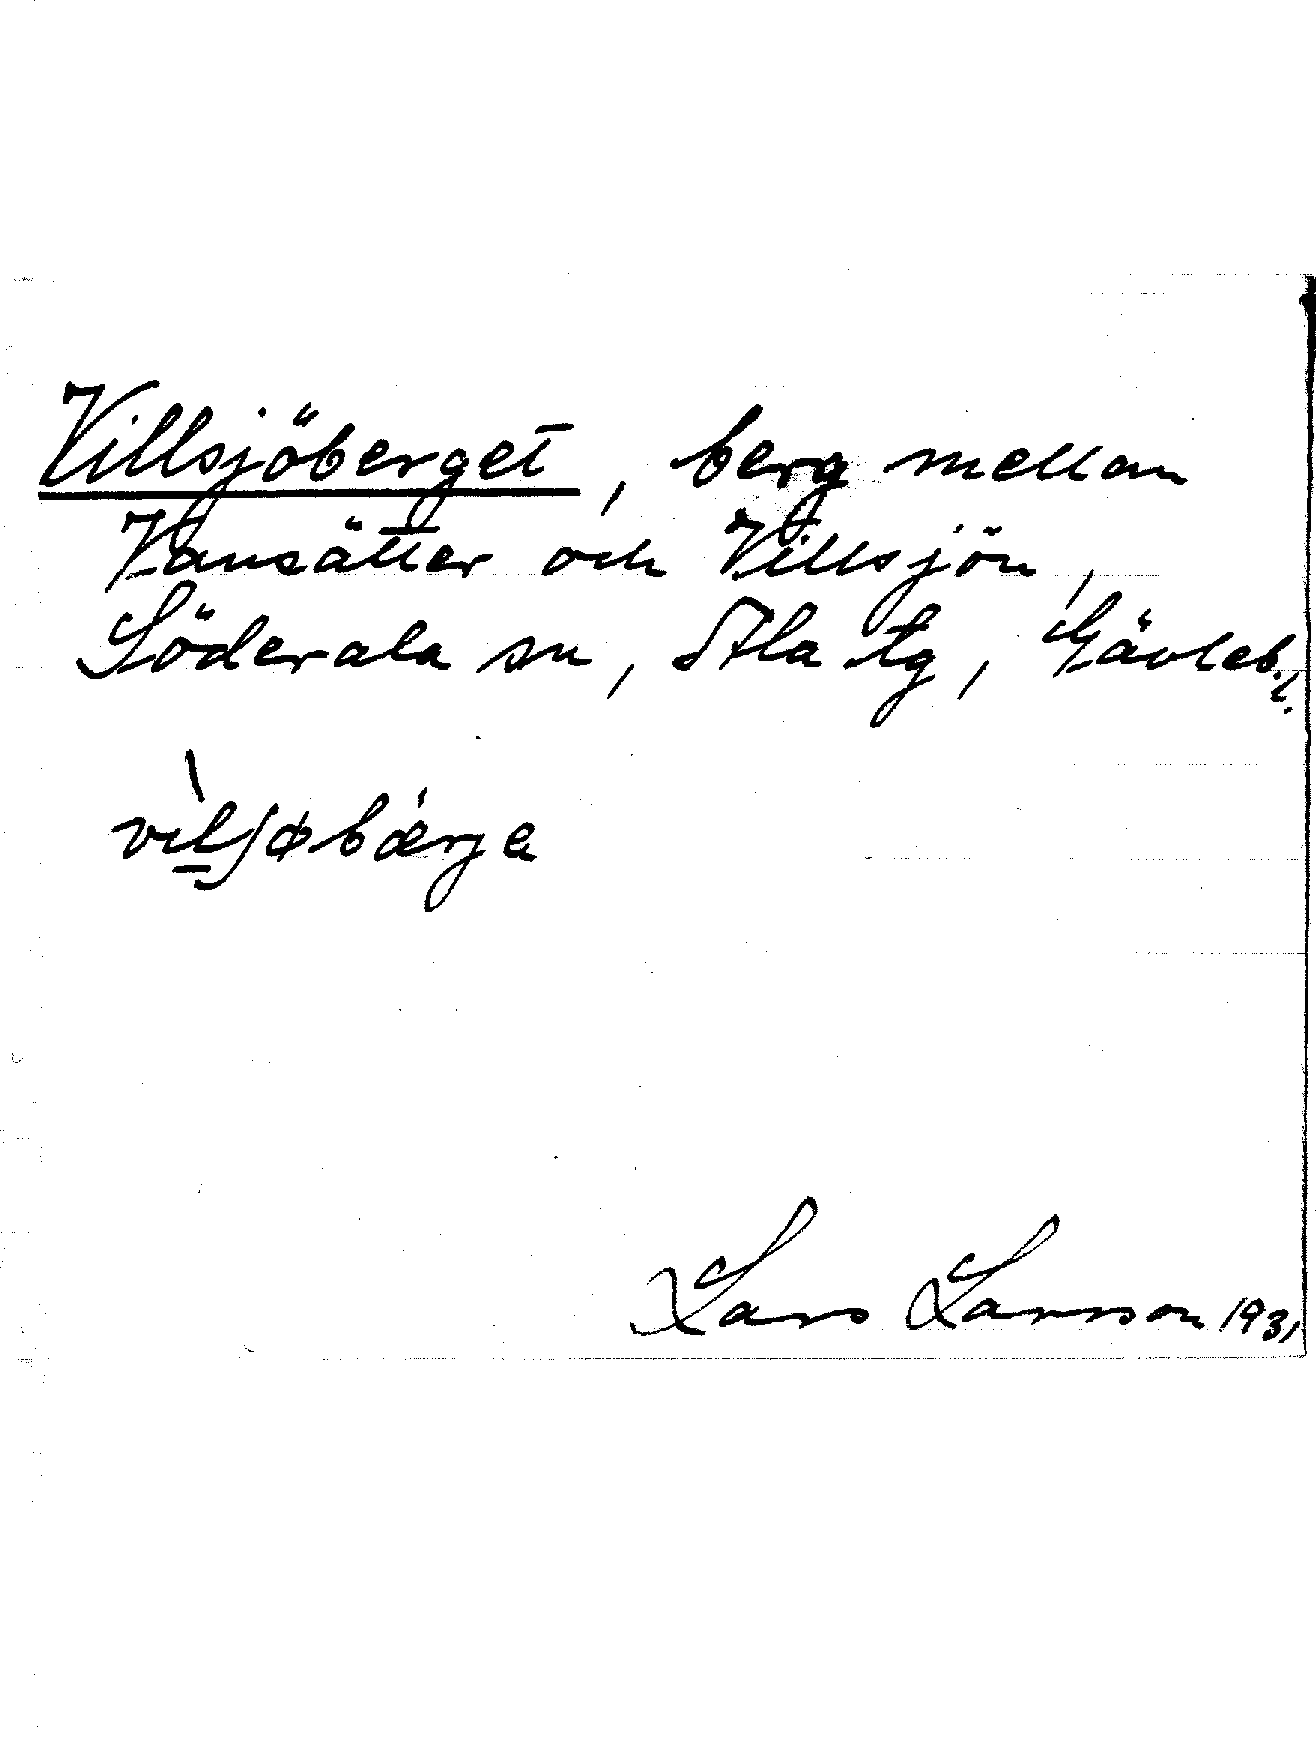 Villsjöberget, berg mellan
Vansätter och Villsjön,
Söderala sn, Ala tg, Gävleb.l.
vilʃøbærje
Lars Larsson 1931